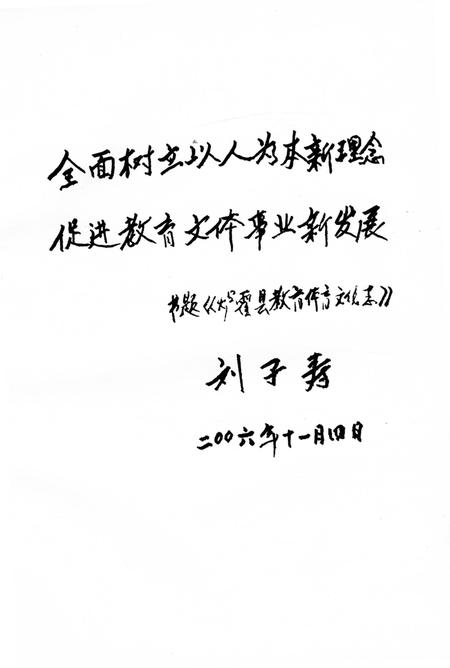 全面树立以人为本新理念
促进教育文体事业新发展
书题《炉霍县教育体育文化志》
刘子寿
二00六年十一月四日